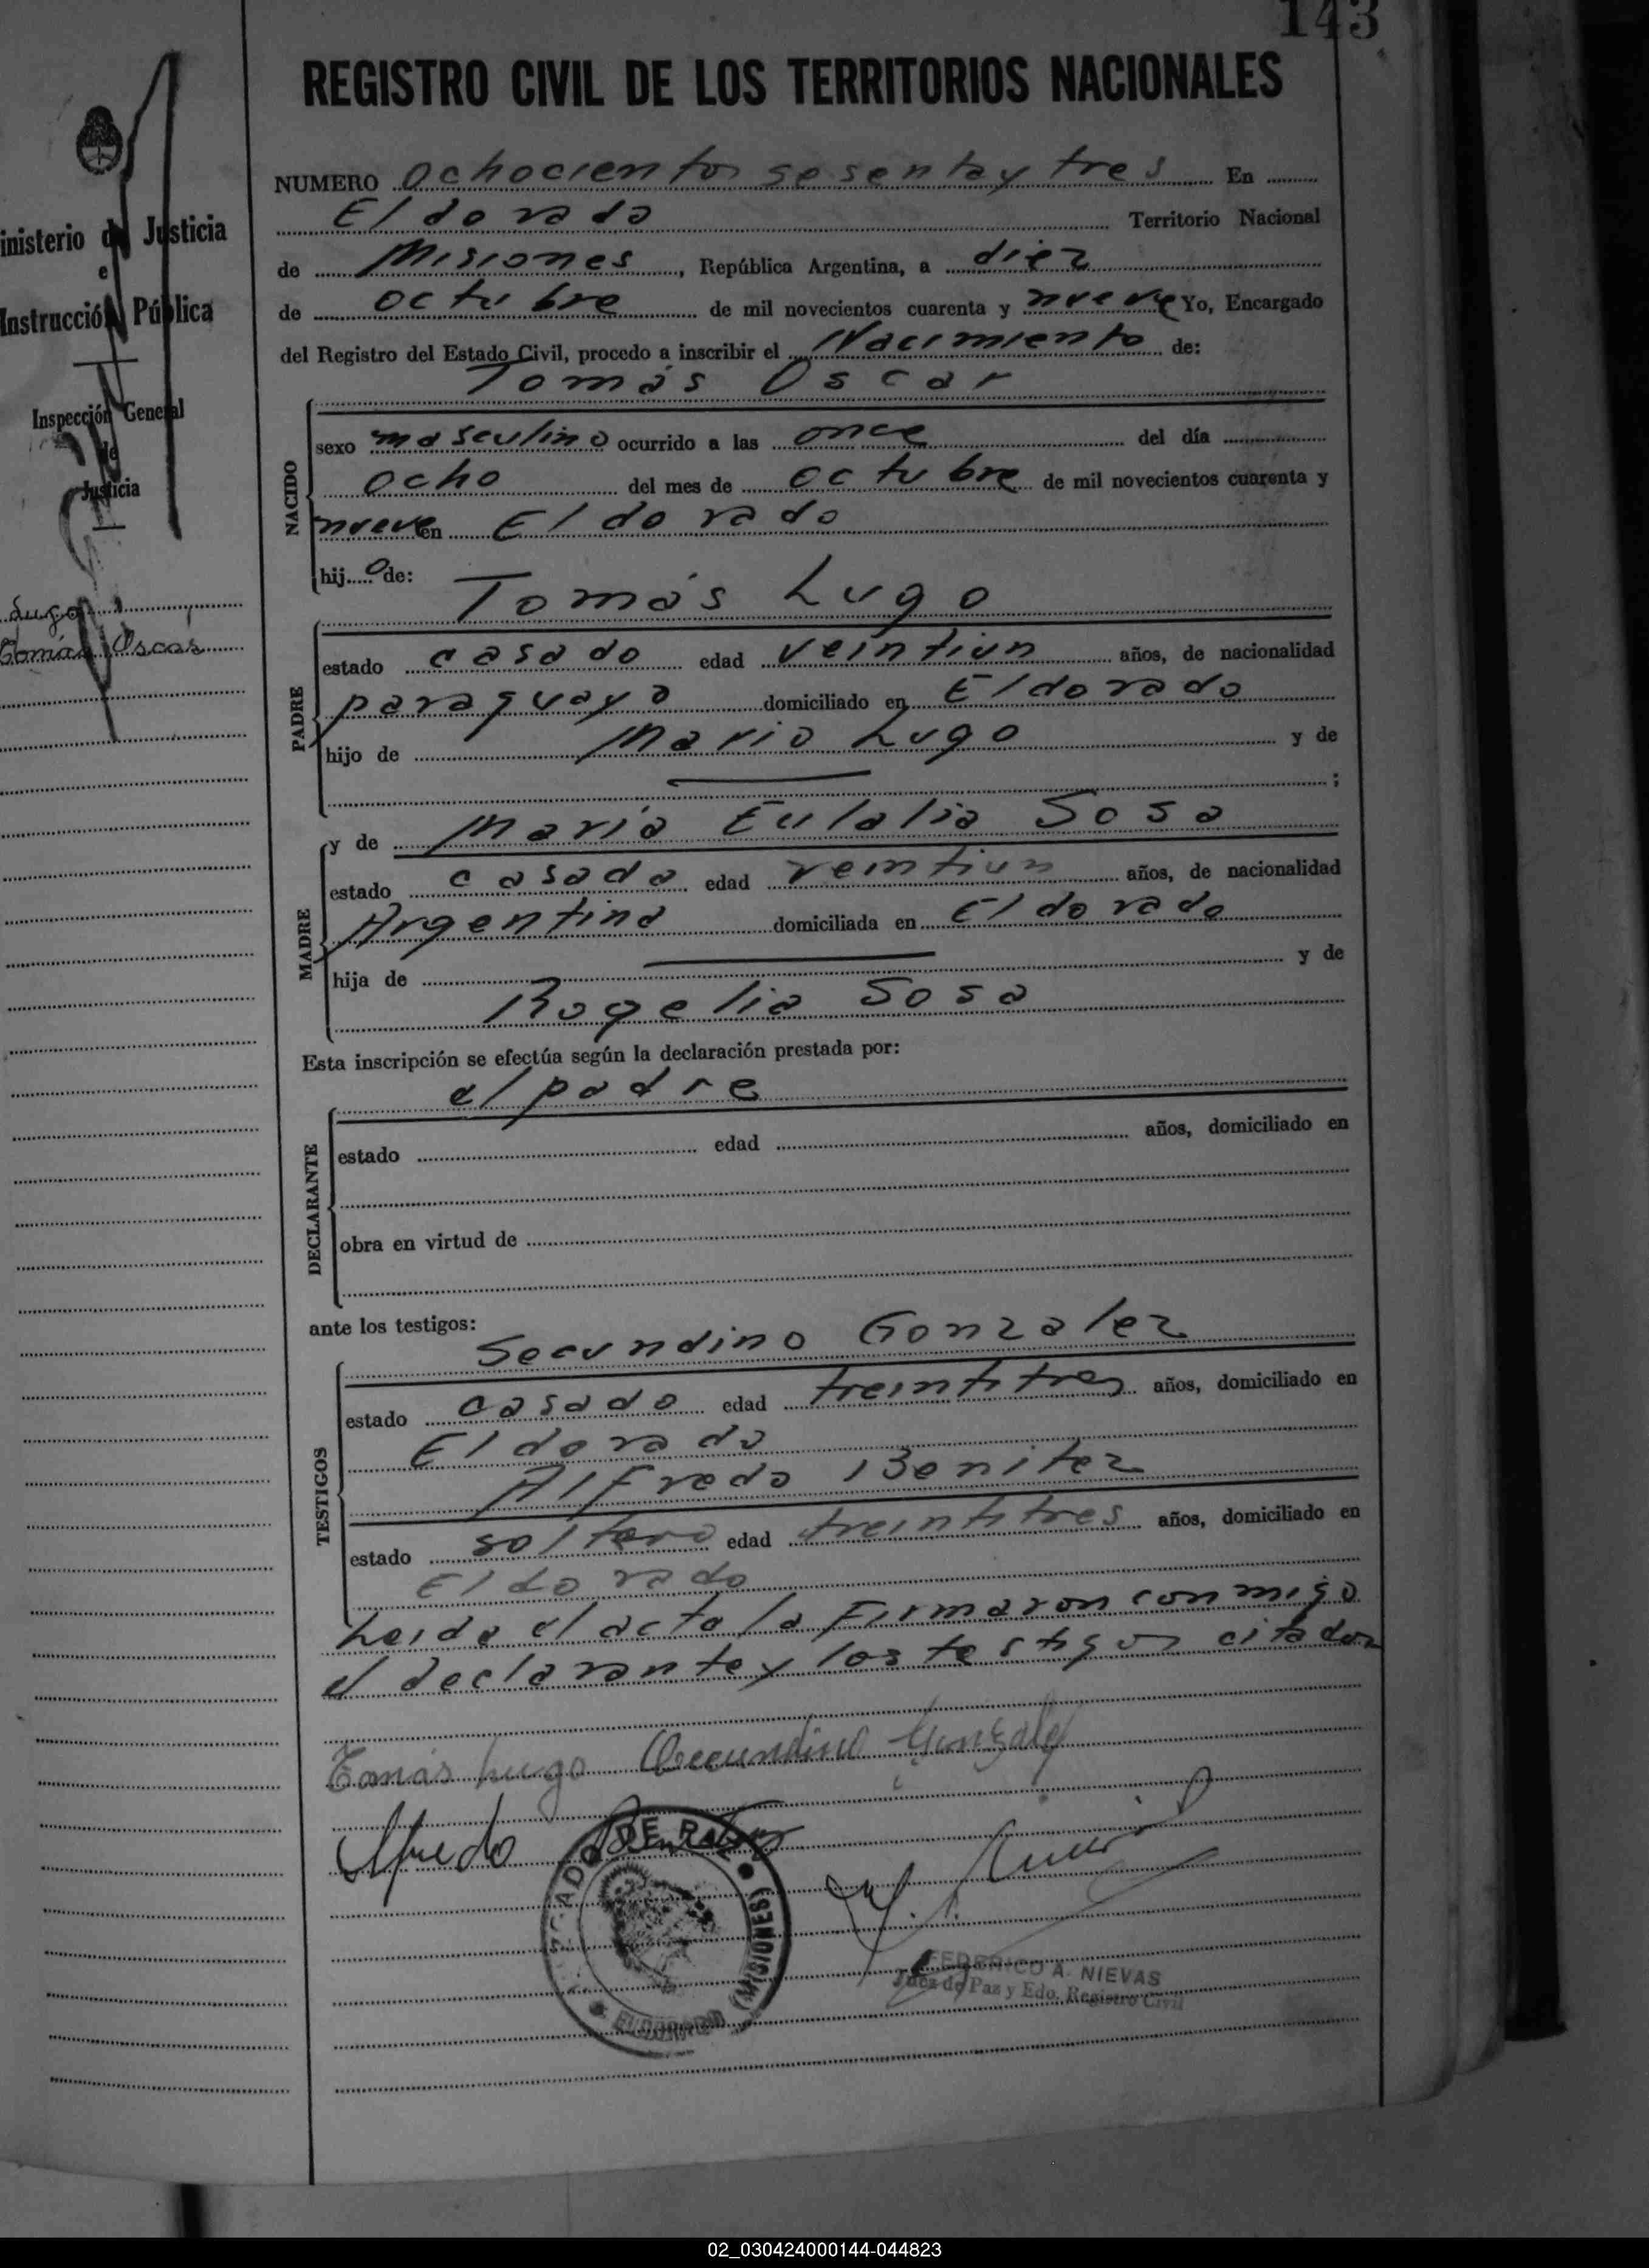 143
REGISTRO CIVIL DE LOS TERRITORIOS NACIONALES
inisterio de Justicia
e
Instrucción Pública
Inspección General
de
Justicia
Lugo
Tomás Oscar
NUMERO ochocientos sesenta y tres En
Eldorado Territorio Nacional
de Misiones, República Argentina, a diez
de octubre de mil novecientos cuarenta y nueve Yo, Encargado
del Registro del Estado Civil, procedo a inscribir el Nacimiento de:
Tomás Oscar
NACIDO
sexo masculino ocurrido a las once del día
ocho del mes de octubre de mil novecientos cuarenta y
nueve en Eldorado
hij o de:
Tomás Lugo
PADRE
estado casado edad veintiun años, de nacionalidad
paraguayo domiciliado en Eldorado
hijo de Mario Lugo y de
;
y de María Eulalia Sosa
MADRE
estado casada edad veintiun años, de nacionalidad
Argentina domiciliada en Eldorado
hija de y de
Rogelia Sosa
Esta inscripción se efectúa según la declaración prestada por:
el padre
DECLARANTE
estado edad años, domiciliado en
obra en virtud de
ante los testigos:
Secundino Gonzalez
TESTIGOS
estado casado edad treintitres años, domiciliado en
Eldorado
Alfredo Benitez
estado soltero edad treintitres años, domiciliado en
Eldorado
Leida el acta la Firmaron conmigo
el declarante y los testigos citados
Tomás Lugo Secundino Gonzalez
Alfredo Benitez
DE PAZ
(MISIONES)
ELDORADO
FEDERICO A. NIEVAS
Juez de Paz y Edo. Registro Civil
02_030424000144-044823